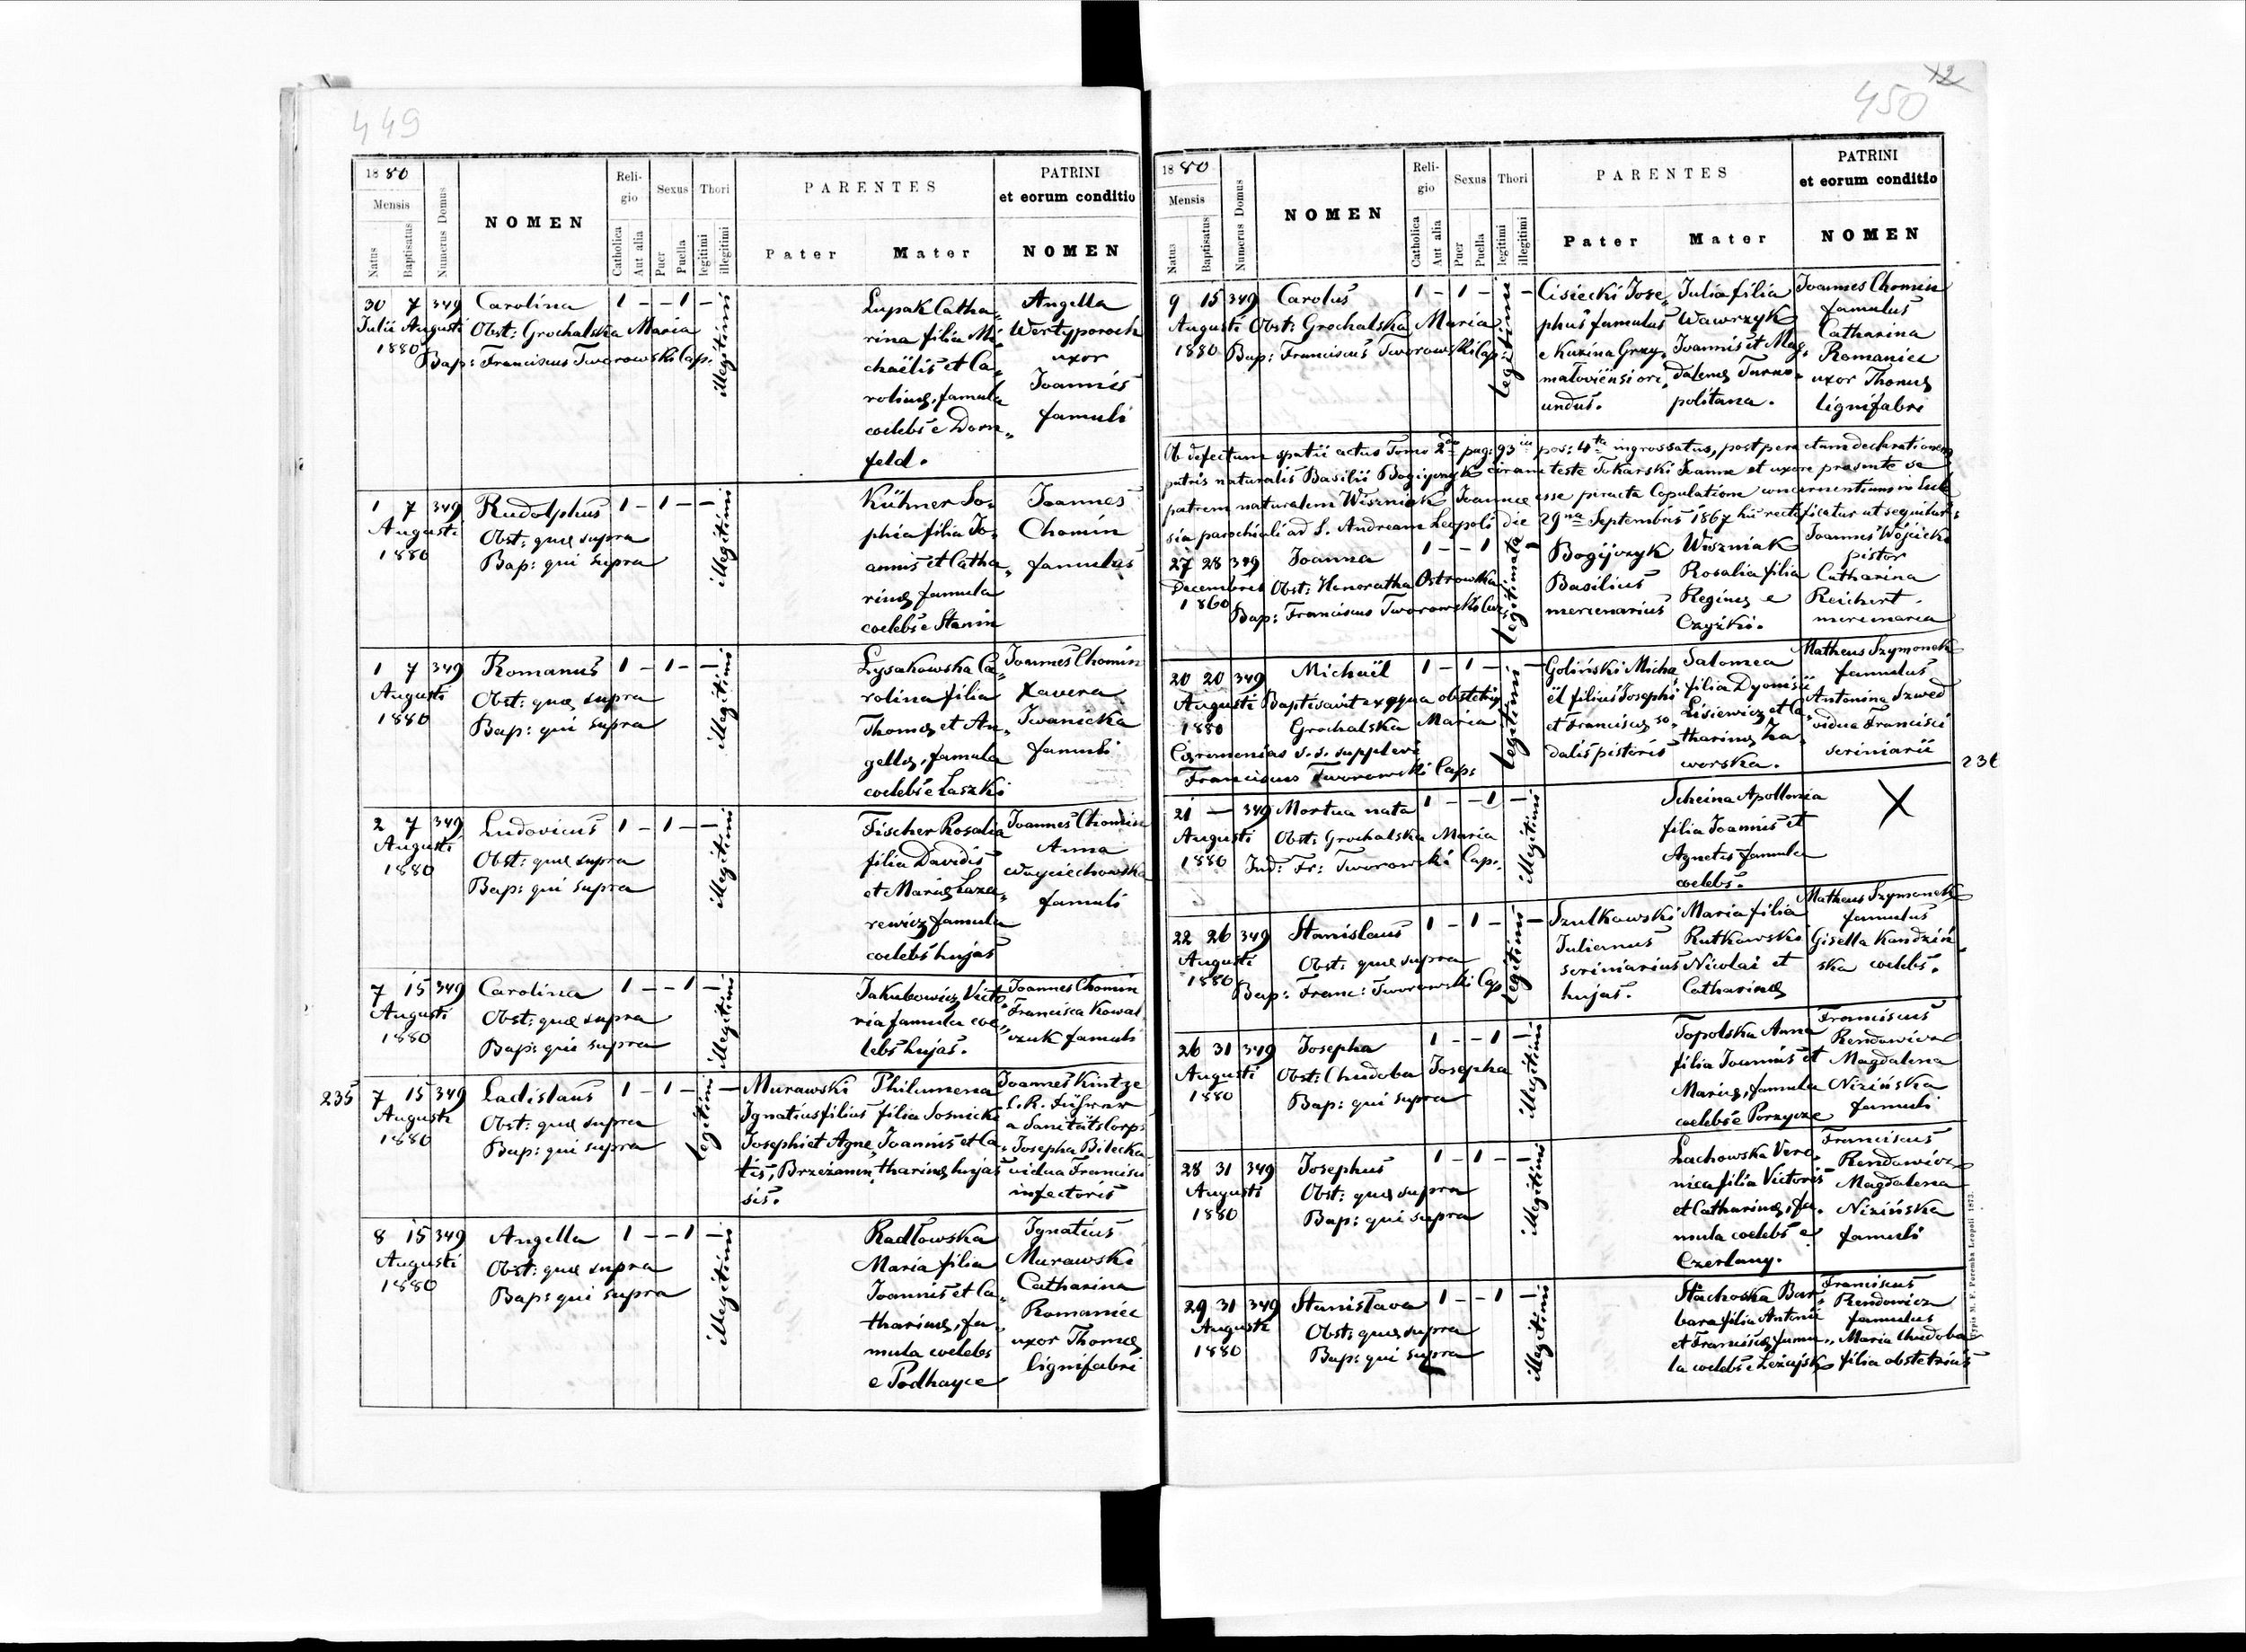 449
1880
Mensis
Natus
Baptisatus
Numerus Domus
NOMEN
Reli-
gio
Catholica
Aut alia
Sexus
Puer
Puella
Thori
legitimi
illegitimi
PARENTES
Pater
Mater
PATRINI
et eorum conditio
NOMEN
30 7 349 Carolina 1 - - 1 -
Julii Augusti Obst: Grochalska Maria
1880 Bap: Franciscus Tworowski Cap:
illegitimi
Lupak Catha„
rina filia Mi„
chaëlis et Ca„
rolinæ, famula
coelebs e Dorn„
feld.
Angella
Wertyporoch
uxor
Joannis
famuli
1 7 349 Rudolphus 1 - 1 - -
Augusti Obst: quæ supra
1880 Bap: qui supra
illegitimi
Kühner So„
phia filia Jo„
annis et Catha„
rinæ famula
coelebs e Stanin
Joannes
Chomin
famulus
1 7 349 Romanus 1 - 1 - -
Augusti Obst: quæ supra
1880 Bap: qui supra
illegitimi
Lysakowska Ca„
rolina filia
Thomæ et An„
gellæ, famula
coelebs e Laszki
Joannes Chomin
Xavera
Iwanicka
famuli
2 7 349 Ludovicus 1 - 1 - -
Augusti Obst: quæ supra
1880 Bap: qui supra
illegitimi
Fischer Rosalia
filia Davidis
et Mariæ Laza„
rewicz famula
coelebs hujas
Joannes Chomin
Anna
Woyciechowska
famuli
7 15 349 Carolina 1 - - 1 -
Augusti Obst: quæ supra
1880 Bap: qui supra
illegitimi
Jakubowicz Victo„
ria famula coe„
lebs hujas.
Joannes Chomin
Francisca Kowal
czuk famuli
235 7 15 349 Ladislaus 1 - 1 - -
Augusti Obst: quæ supra
1880 Bap: qui supra
legitimi
Murawski
Ignatius filius
Josephi et Agne„
tis, Brzeżanen„
sis.
Philumena
filia Sosnicki
Joannis et Ca„
tharinæ hujas
Joannes Kintze
C. R. Führer
a Sanitätscorps
Josepha Bilecka
vidua Francisci
infectoris
8 15 349 Angella 1 - - 1 -
Augusti Obst: quæ supra
1880 Bap: qui supra
illegitimi
Radłowska
Maria filia
Joannis et Ca„
tharinæ, fa„
mula coelebs
e Podhayce
Ignatius
Murawski
Catharina
Romaniec
uxor Thomæ
lignifabri
450
12
1880
Mensis
Natus
Baptisatus
Numerus Domus
NOMEN
Reli-
gio
Catholica
Aut alia
Sexus
Puer
Puella
Thori
legitimi
illegitimi
PARENTES
Pater
Mater
PATRINI
et eorum conditio
NOMEN
9 15 349 Carolus 1 - 1 - -
Augusti Obst: Grochalska Maria
1880 Bap: Franciscus Tworowski Cap:
legitimi
Cisiecki Jose„
phus famulus
e Kuzina Grzy„
matoviensi ori„
undus.
Julia filia
Wawrzyk
Joannis et Mag„
dalenæ Tarno„
politana.
Joannes Chomin
famulus
Catharina
Romaniec
uxor Thomæ
lignifabri
Ob defectum spatii actus Tomo 2do pag: 93 in pos: 4ta ingrossatus, post peractam declarationem
patris naturalis Basilii Bogijczyk coram teste Tokarski Joanne et uxore præsente se
patrem naturalem Wiszniak Joannæ esse peracta Copulatione concernentium in Eccle
sia parochiali ad S. Andream Leopoli die 29na Septembris 1867 hic rectificatur ut sequitur:
27 28 349 Joanna 1 - - 1
Decembris Obst: Honoratha Ostrowska
1860 Bap: Franciscus Tworowski
legitimata
Bogijczyk
Basilius
mercenarius
Wiszniak
Rosalia filia
Reginæ e
Czyżki.
Joannes Wójcicki
pistor
Catharina
Reichert
mercenaria
20 20 349 Michaël 1 - 1 - -
Augusti Baptisavit ex aqua obstetrix
1880 Grochalska Maria
Ceremonias s. s. supplevi
Franciscus Tworowski Cap:
legitimi
Goliński Micha„
ël filius Josephi
et Franciscæ so„
dalis pistoris
Salomea
filia Dyonisii
Lisiewicz et Ca„
tharinæ Ja„
worska.
Matheus Szymonek
famulus
Antonina Szwed
vidua Francisci
scriniarii
236
21 - 349 Mortua nata 1 - - 1 -
Augusti Obst: Grochalska Maria
1880 Ind: Fr: Tworowski Cap:
illegitimi
Scheina Apollonia
filia Joannis et
Agnetis famula
coelebs.
X
22 26 349 Stanislaus 1 - 1 - -
Augusti Obst: quæ supra
1880 Bap: Franc: Tworowski Cap
legitimi
Szulkowski
Julianus
scriniarius
hujas.
Maria filia
Rutkowski
Nicolai et
Catharinæ
Matheus Szymonek
famulus
Gisella Kandziń
ska coelebs.
26 31 349 Josepha 1 - - 1 -
Augusti Obst: Chudoba Josepha
1880 Bap: qui supra
illegitimi
Topolska Anna
filia Joannis et
Mariæ, famula
coelebs e Porzycze
Franciscus
Rendowicz
Magdalena
Nizińska
famuli
28 31 349 Josephus 1 - 1 - -
Augusti Obst: quæ supra
1880 Bap: qui supra
illegitimi
Lachowska Vero„
nica filia Victoris
et Catharinæ, fa„
mula coelebs e
Czerlany.
Franciscus
Rendowicz
Magdalena
Nizińska
famuli
29 31 349 Stanisława 1 - - 1 -
Augusti Obst: quæ supra
1880 Bap: qui supra
illegitimi
Stachoska Bar„
bara filia Antonii
et Franciscæ famu„
la coelebs e Leżajsk
Franciscus
Rendowicz
famulus
Maria Chudoba
filia obstetricis
Typis M. F. Poremba Leopoli 1873.